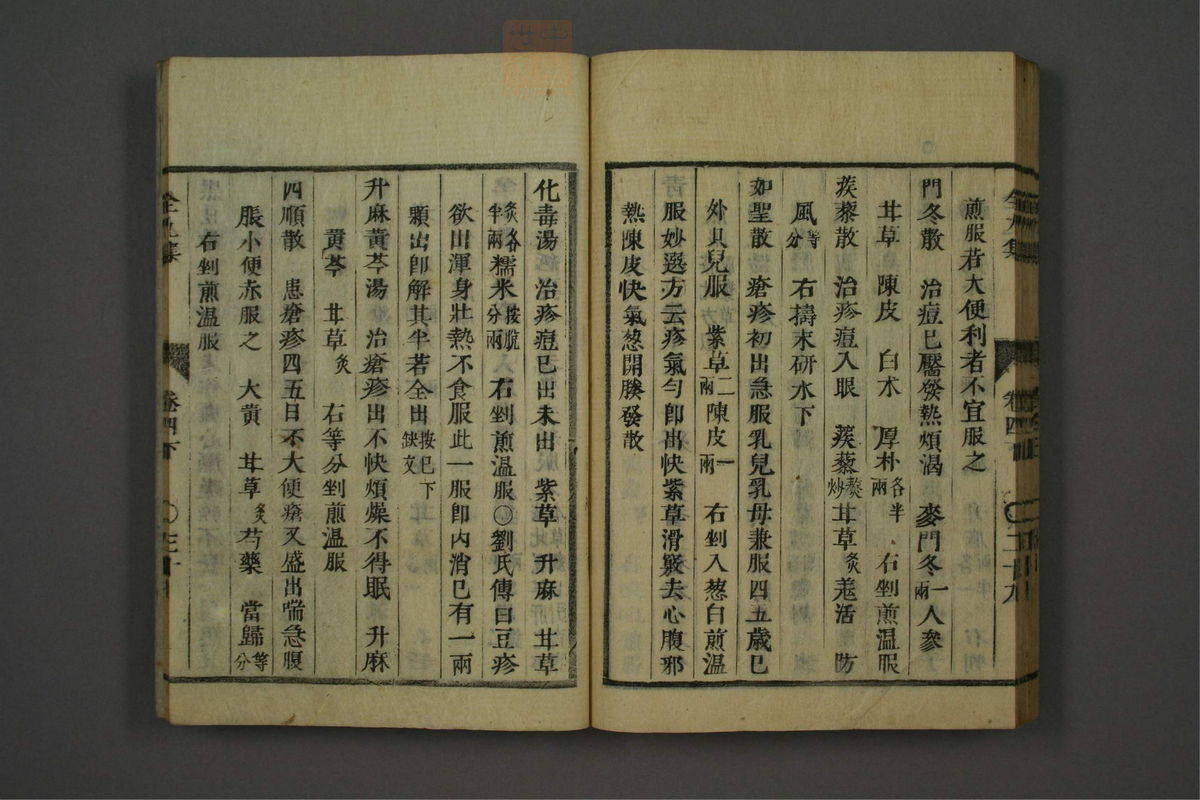 煎服若大便利者不宜服之
門冬散 治痘已靨發熱煩渴 麥門冬一兩人參
甘草 陳皮 白朮 厚朴各半兩 右剉煎溫服
蒺藜散 治疹痘入眼 蒺藜炒甘草炙羗活 防
風等分 右擣末研水下
如聖散 瘡疹初出急服乳兒乳母兼服四五歲已
外只兒服 紫草二兩陳皮一兩 右剉入葱白煎溫
服妙選方云疹氣匀卽出快紫草滑竅去心腹邪
熱陳皮快氣葱開腠發散
卷四下 二十九
化毒湯 治疹痘已出未出 紫草 升麻 甘草
炙各半兩糯米按脫分兩 右剉煎溫服〇劉氏傳曰豆疹
欲出渾身壯熱不食服此一服卽內消已有一兩
顆出卽解其半若全出按已下缺文
升麻黃芩湯 治瘡疹出不快煩燥不得眠 升麻
黃芩 甘草炙 右等分剉煎溫服
四順散 患瘡疹四五日不大便瘡又盛出喘急腹
脹小便赤服之 大黃 甘草炙芍藥 當歸等分
右剉煎溫服
卷四下